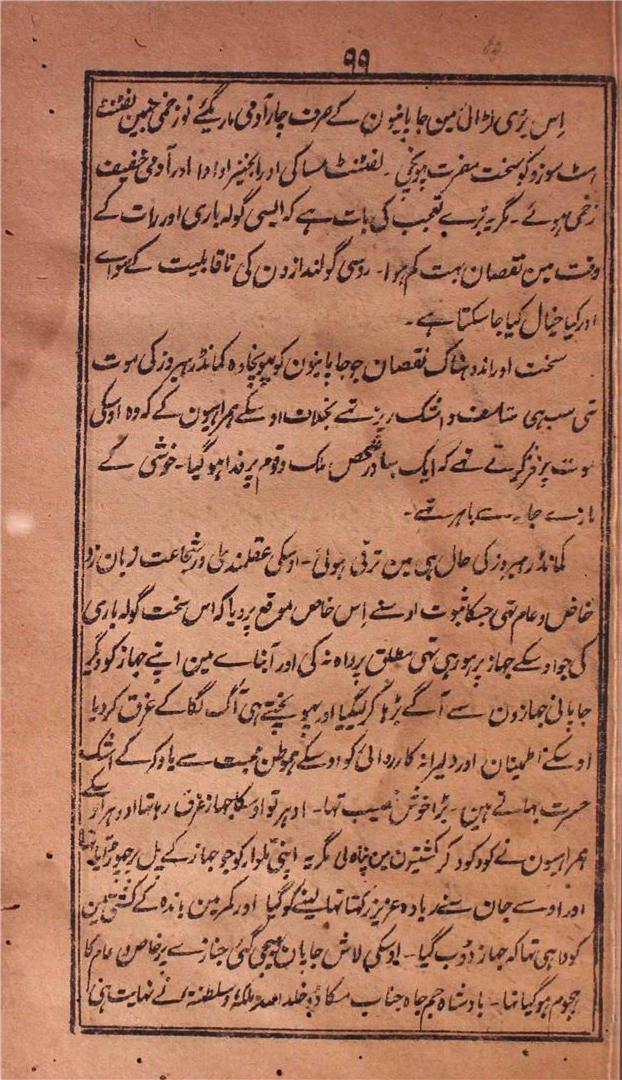 ۹۹
اِس بڑی لڑائی مین جاپانیون کے صرف چار آدمی مارے گئے نو زخمی جنمین لفٹنٹ
اسٹ سوزوکو سخت مضرت پہونچی ۔ لفٹنٹ مساکی اور انجنیر اوادا اور آدمی خفیف
زخمی ہوئے ۔ مگر یہ بڑے تعجب کی بات ہے کہ ایسی گولہ باری اور رات کے
وقت مین نقصان بہت کم ہوا ۔ روسی گولندازون کی ناقابلیت کے سواے
اور کیا خیال کیا جا سکتا ہے ۔
سخت اور اندوہناک نقصان جو جاپانیون کو پہونچا وہ کمانڈر ہیروز کی موت
تہی سب ہی متاسف و اشک ریز تہے بخلاف اوسکے ہمراہیون کے کہ وہ اوسکی
موت پر فخر کرتے تہے کہ ایک بہادر شخص ملک و قوم پر فدا ہو گیا ۔ خوشی کے
مارے جامے سے باہر تہے ۔
کمانڈر ہیروز کی حال ہی مین ترقی ہوئی ۔ اوسکی عقلمندی اور شجاعت زبان زد
خاص و عام تہی جسکا ثبوت اوسنے اِس خاص موقع پر دیا کہ اس سخت گولہ باری
کی جو اوسکے جہاز پر ہو رہی تہی مطلق پرواہ نہ کی اور آبناے مین اپنے جہاز کو دیگر
جاپانی جہازون سے آگے بڑہا کر لیگیا اور پہونچتے ہی آگ لگا کے غرق کر دیا
اوسکے اطمینان اور دلیرانہ کارروائی کو اوسکے ہموطن محبت سے یاد کر کے اشک
حسرت بہاتے ہین ۔ بڑا خوش نصیب تہا ۔ ادہر تو اوسکا جہاز غرق ہو رہا تہا اودہر اوسکے
ہمراہیون نے کود کود کر کشتیون مین پناہ لی مگر یہ اپنی تلوار کو جو جہاز کے پل پر چہوڑ آیا تہا
اور اوسے جان سے زیادہ عزیز رکہتا تہا لینے کو گیا اور کمر مین باندہ کے کشتی مین
کودا ہی تہا کہ جہاز ڈوب گیا ۔ اوسکی لاش جاپان بہیجی گئی جنازے پر خاص و عام کا
ہجوم ہو گیا تہا ۔ بادشاہ جم جاہ جناب مکاڈو خلد اللہ ملکہ و سلطنتہ نے نہایت ہی